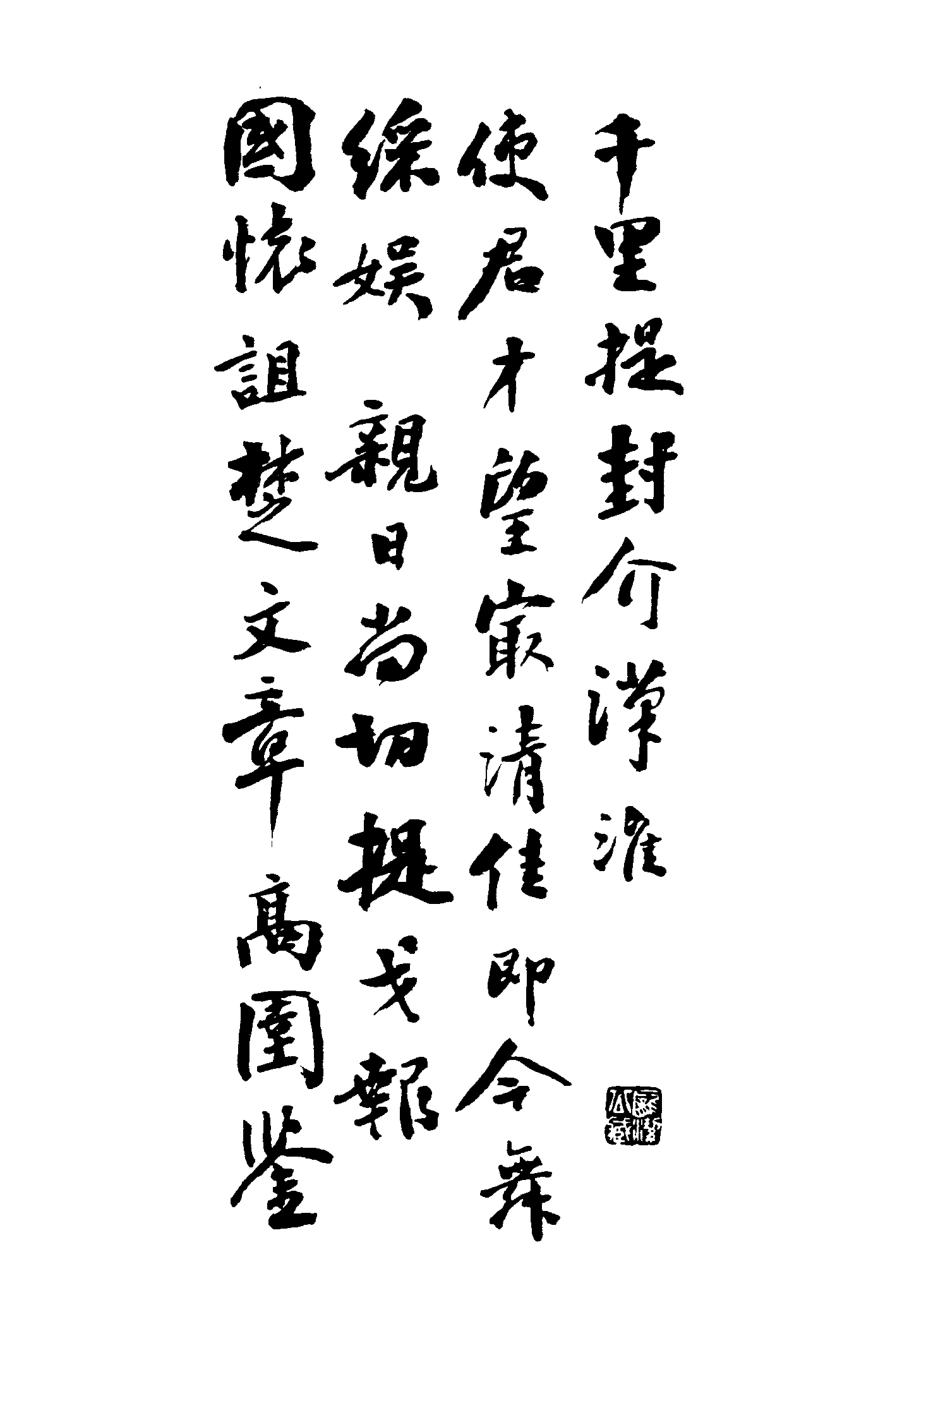 千里提封介漢淮
使君才望㝡清佳即今舞
綵娛親日尚切提戈報
國懷詛楚文章高圍鉴